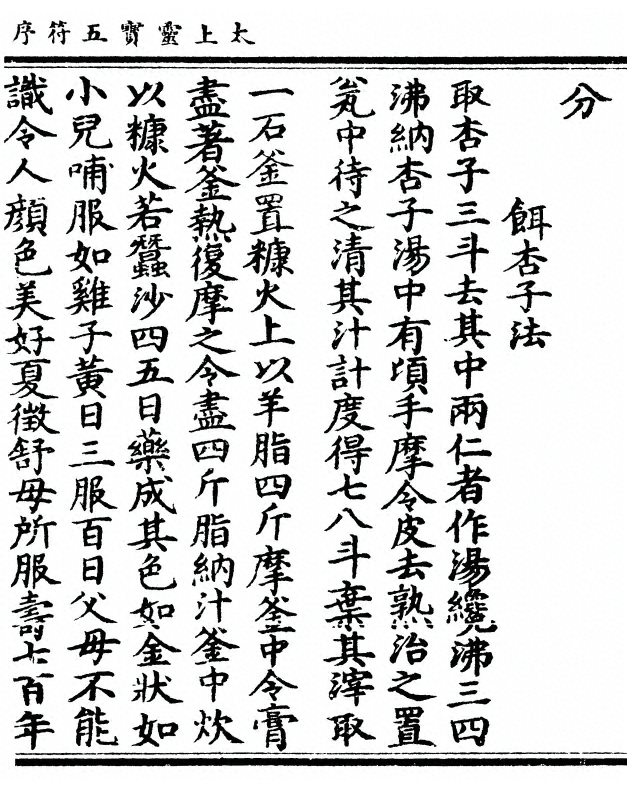 太上靈寶五符序
分
餌杏子法
取杏子三斗去其中兩仁者作湯纔沸三四
沸納杏子湯中有頃手摩令皮去熟治之置
瓮中待之清其汁計度得七八斗棄其滓取
一石釜置糠火上以羊脂四斤摩釜中令膏
盡著釜熱復摩之令盡四斤脂納汁釜中炊
以糠火若蠶沙四五日藥成其色如金狀如
小兒哺服如雞子黃日三服百日父母不能
識令人顏色美好夏徵舒母所服壽七百年